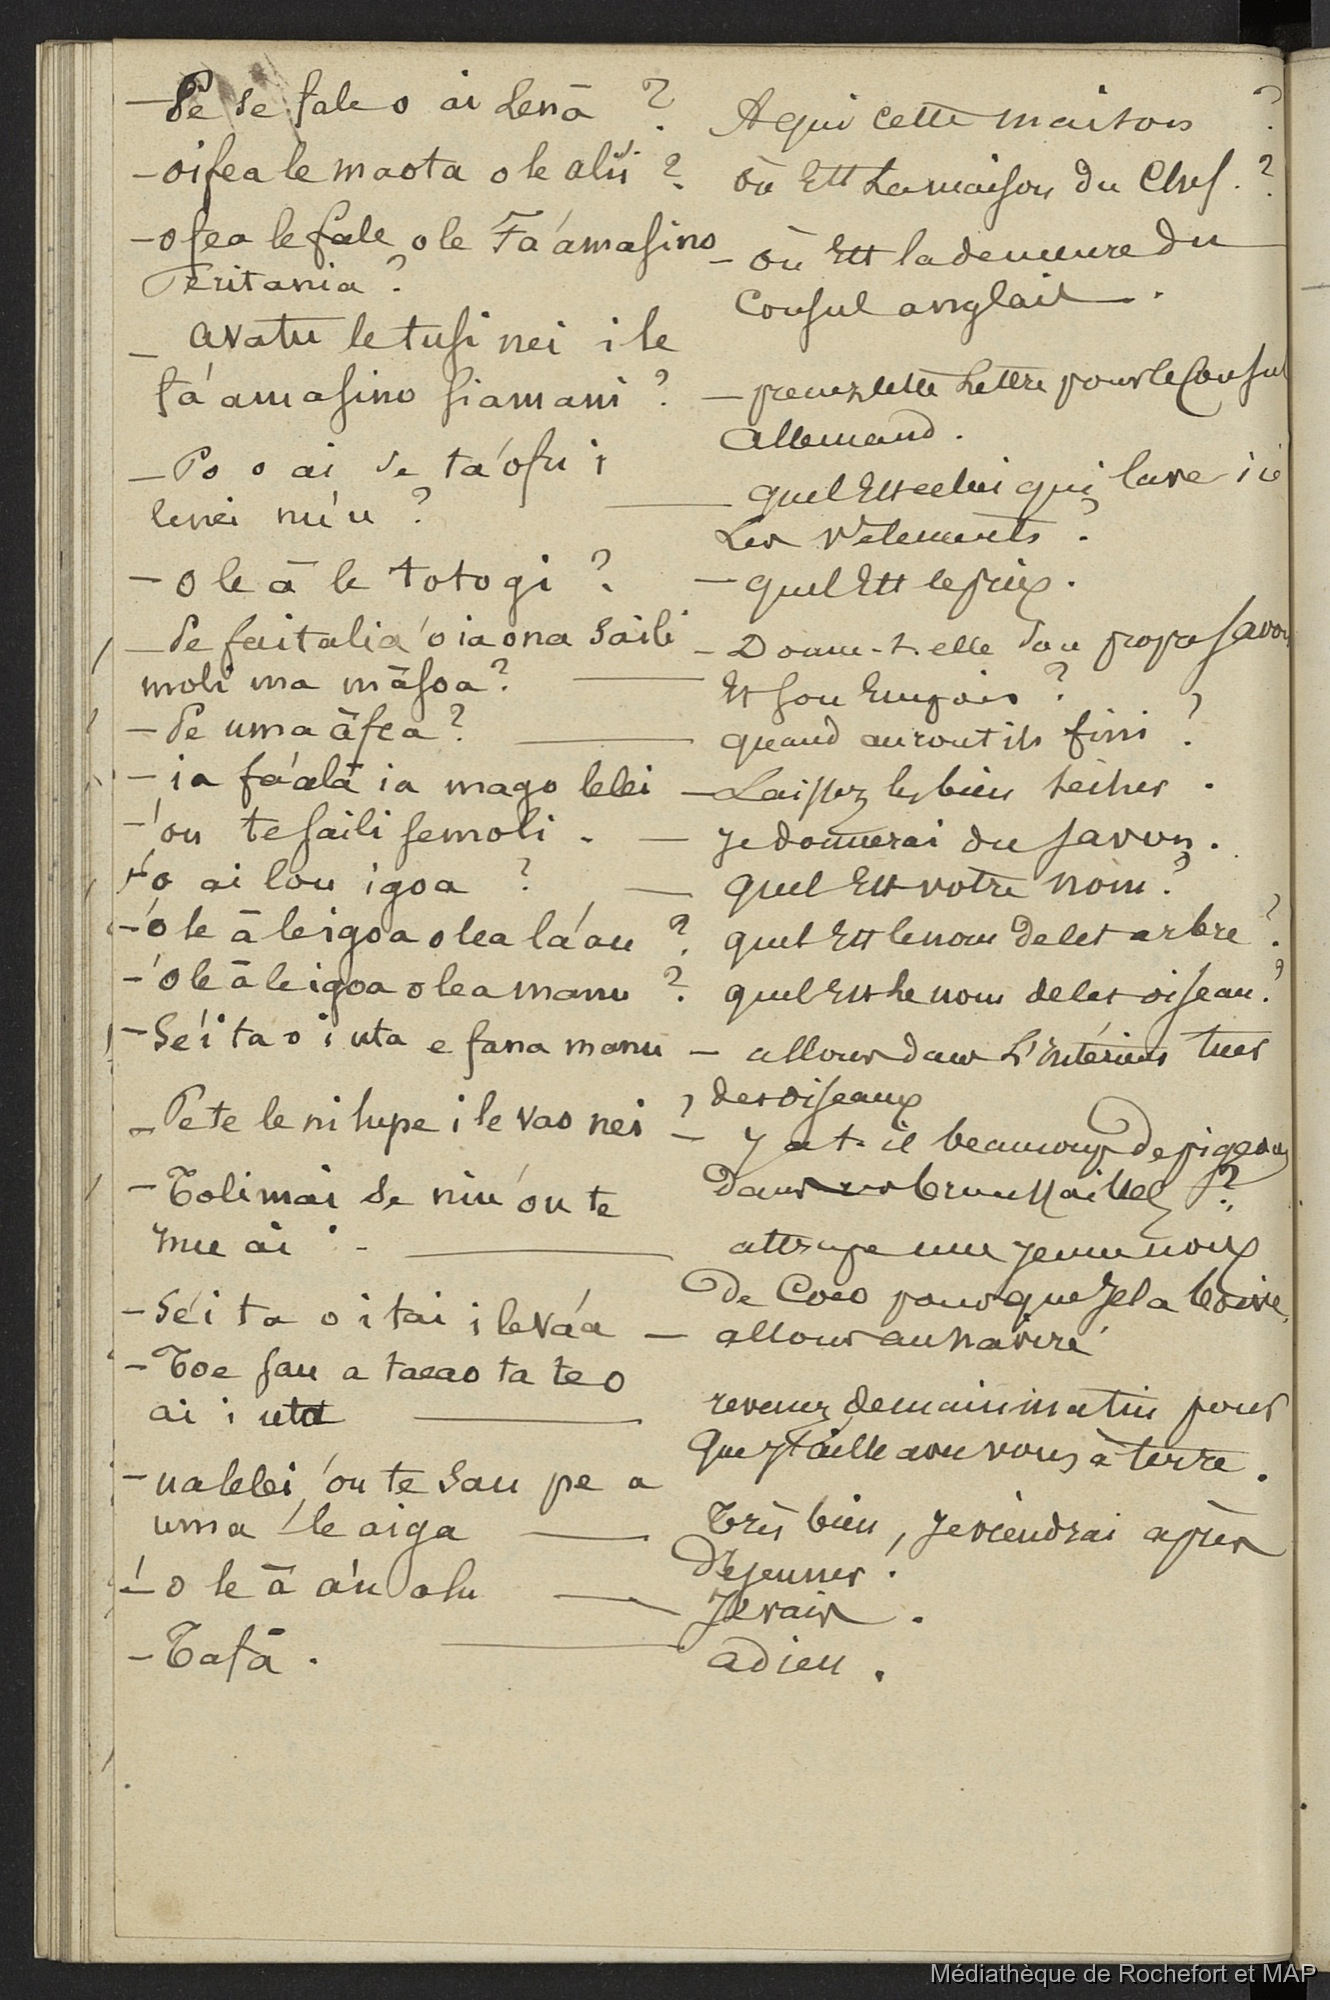 — Pe se fale o ai lenā ? A qui cette maison ?
— oifea le maota o le alii ? où Est La maison du Chef . ?
— ofea le fale o le Fa'amasino — où Est la demeure du
Peritania ? Consul anglais .
— avatu le tusi nei i le
fa'amasino siamani ? — prenez cette Lettre pour le Consul
allemand .
— Po o ai se ta'ofu i
lenei nu'u ? — quel Est celui qui lave ici
Les vêtements ?
— o le ā le totogi ? — quel Est le prix .
— Pe faitalia 'o ia ona saili — Donne-t-elle son propre savon
moli ma māsoa ? — Et son Empois ?
— Pe uma āfea ? — quand auront ils fini ?
— ia fa'alā ia mago lelei — Laissez les bien sécher .
— 'ou te saili se moli . — Je donnerai du savon .
— 'o ai lou igoa ? — quel Est votre nom ?
— 'o le ā le igoa o lea la'au ? quel Est le nom de cet arbre ?
— 'o le ā le igoa o lea manu ? quel Est Le nom de cet oiseau ?
— Se'i ta o i uta e fana manu — allons dans L'Intérieur tuer
des oiseaux
— Pe te le ni lupe i le vao nei ? — y a t-il beaucoup de pigeons
dans ces broussailles ?
— Tolimai se niu 'ou te
inu ai . — attrape une jeune noix
De Coco pour que Je la boive .
— Se'i ta o i tai i le va'a — allons au navire
— Toe sau a taeao ta te o
ai i uta — revenez demain matin pour
que J'aille avec vous à terre .
— ua lelei, 'ou te sau pe a
uma 'le aiga — Très bien, Je viendrai après
Déjeuner .
— 'o le ā a'u alu — Je vais .
— Tofā . — adieu .
Médiathèque de Rochefort et MAP